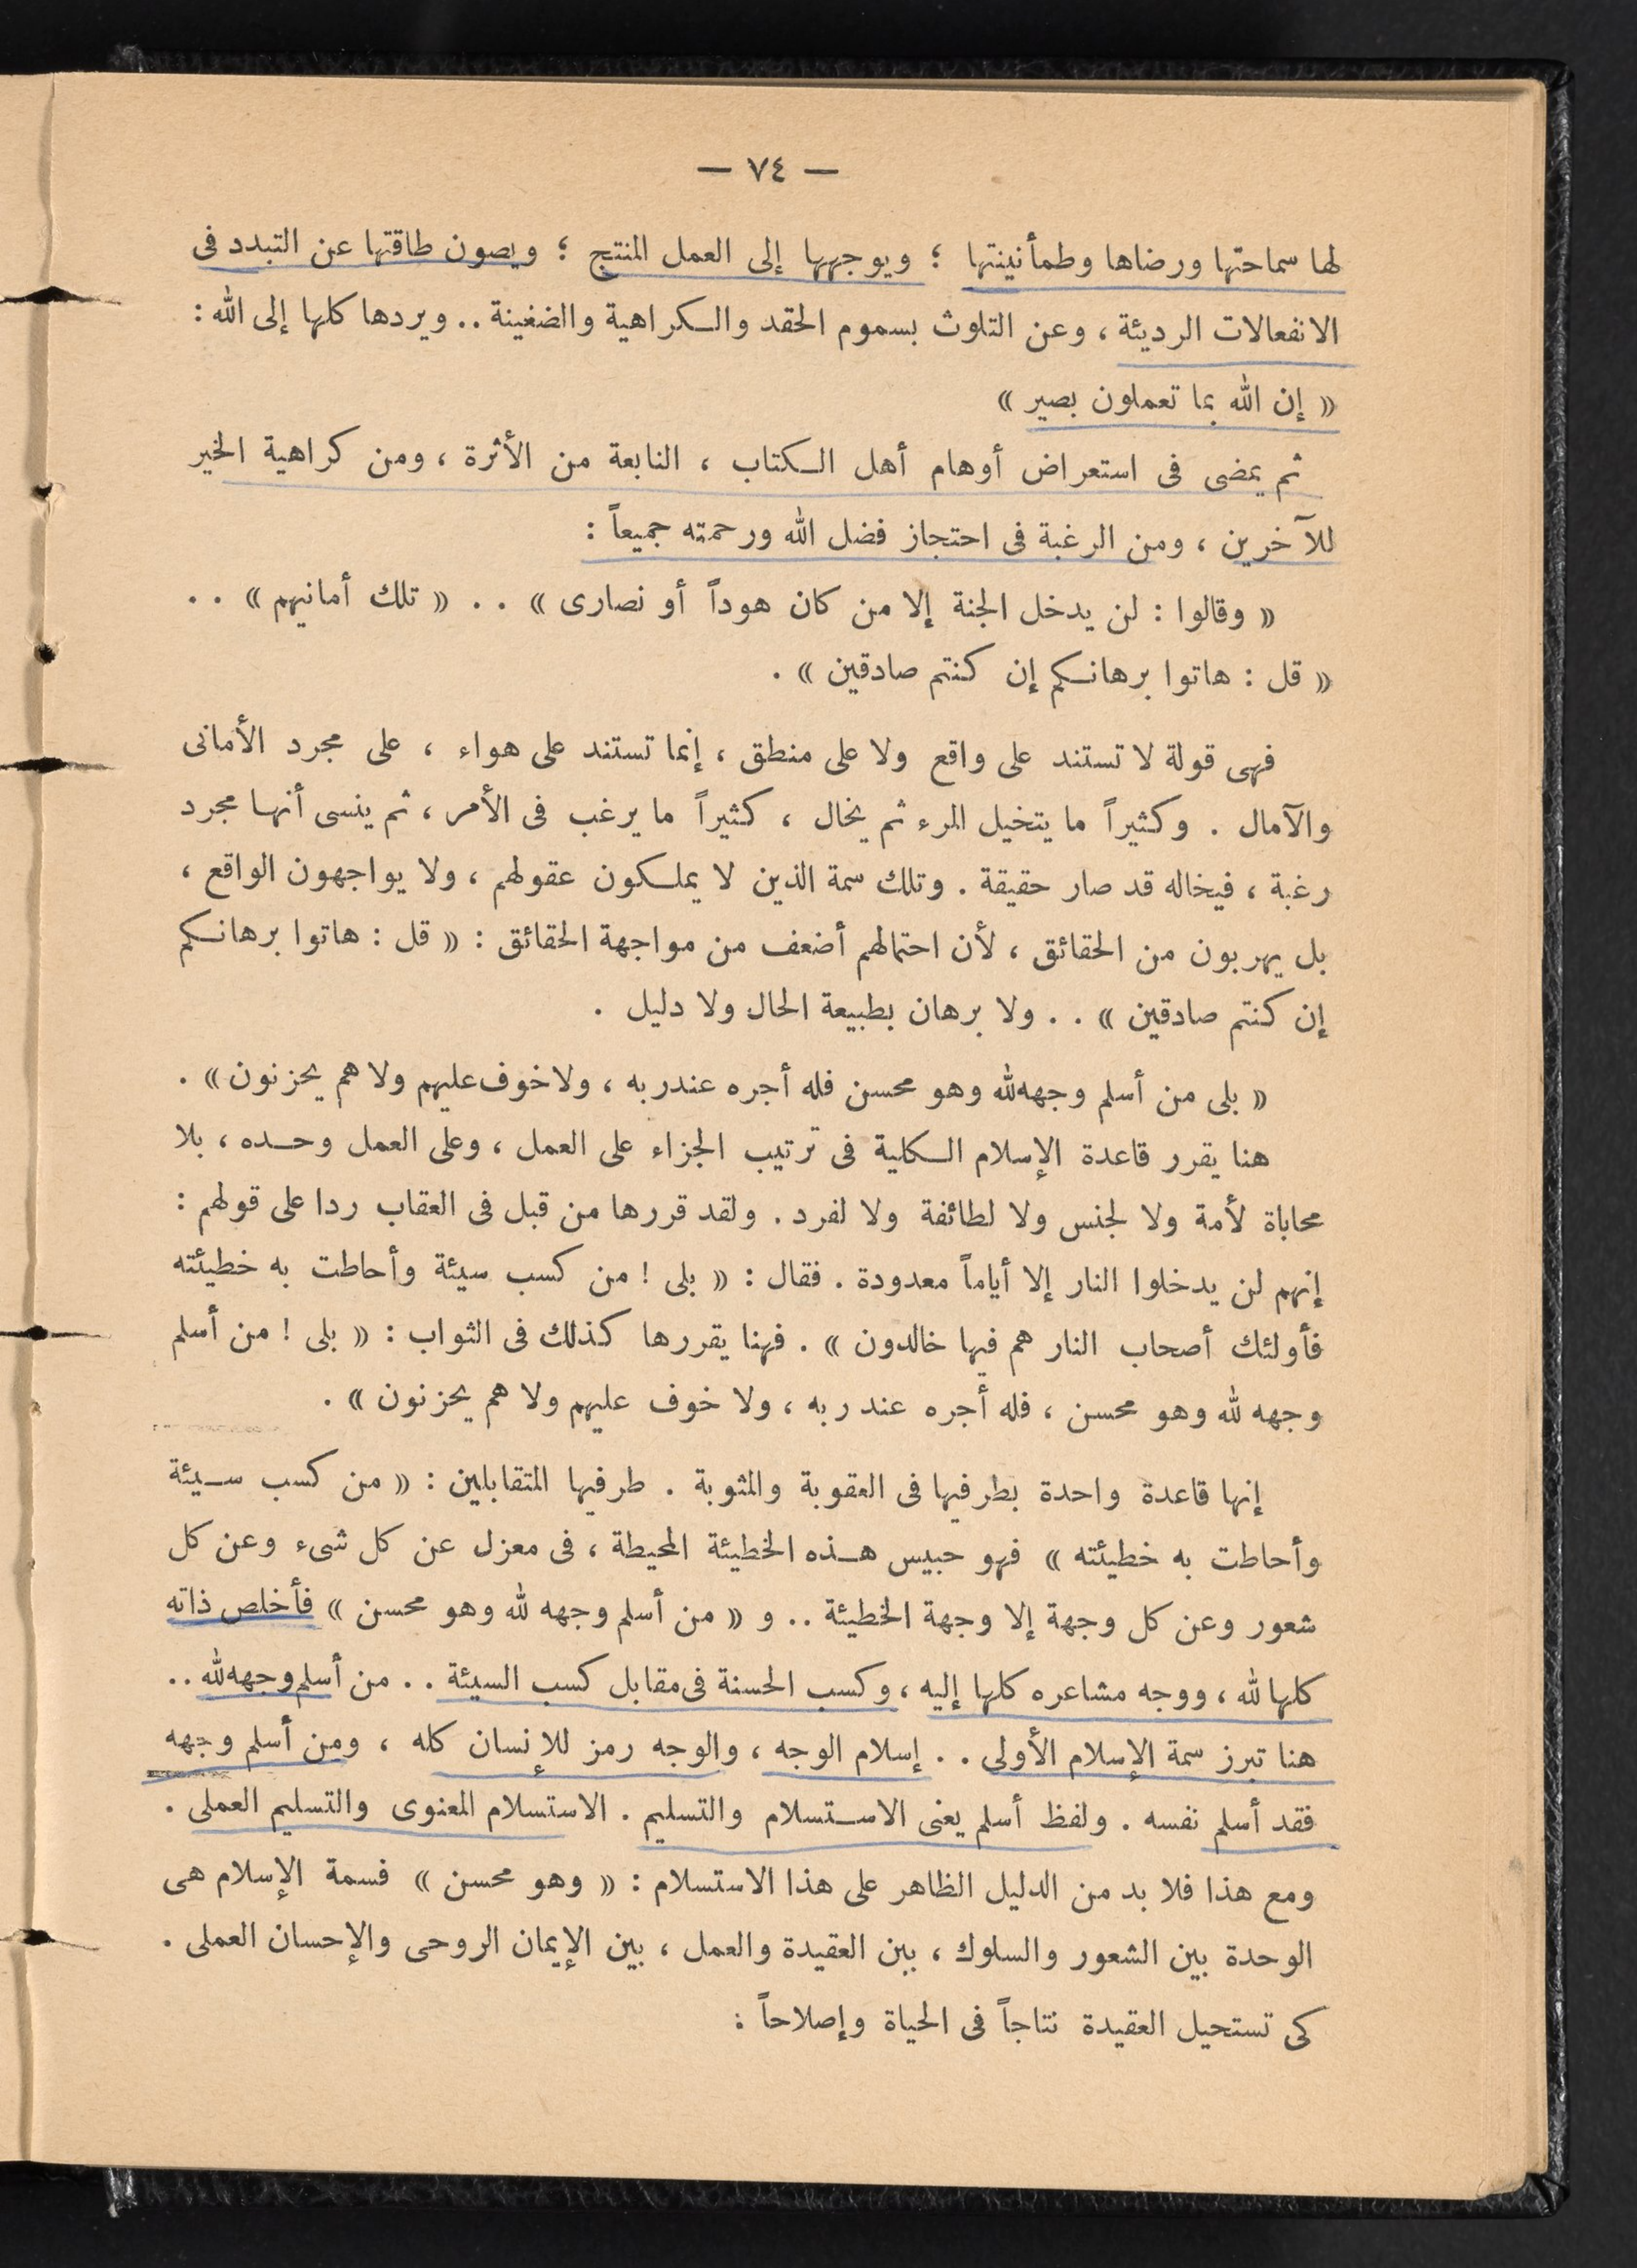 — ٧٤ —
لها سماحتها ورضاها وطمأنينتها ؛ ويوجهها إلى العمل المنتج ؛ ويصون طاقتها عن التبدد فى
الانفعالات الرديئة ، وعن التلوث بسموم الحقد والكراهية والضغينة .. ويردها كلها إلى الله :
« إن الله بما تعملون بصير »
ثم يمضى فى استعراض أوهام أهل الكتاب ، النابعة من الأثرة ، ومن كراهية الخير
للآخرين ، ومن الرغبة فى احتجاز فضل الله ورحمته جميعاً :
« وقالوا : لن يدخل الجنة إلا من كان هوداً أو نصارى » . . « تلك أمانيهم » . .
« قل : هاتوا برهانكم إن كنتم صادقين » .
فهى قولة لا تستند على واقع ولا على منطق ، إنما تستند على هواء ، على مجرد الأمانى
والآمال . وكثيراً ما يتخيل المرء ثم يخال ، كثيراً ما يرغب فى الأمر ، ثم ينسى أنها مجرد
رغبة ، فيخاله قد صار حقيقة . وتلك سمة الذين لا يملكون عقولهم ، ولا يواجهون الواقع ،
بل يهربون من الحقائق ، لأن احتمالهم أضعف من مواجهة الحقائق : « قل : هاتوا برهانكم
إن كنتم صادقين » . . ولا برهان بطبيعة الحال ولا دليل .
« بلى من أسلم وجهه لله وهو محسن فله أجره عند ربه ، ولا خوف عليهم ولا هم يحزنون » .
هنا يقرر قاعدة الإسلام الكلية فى ترتيب الجزاء على العمل ، وعلى العمل وحده ، بلا
محاباة لأمة ولا لجنس ولا لطائفة ولا لفرد . ولقد قررها من قبل فى العقاب ردا على قولهم :
إنهم لن يدخلوا النار إلا أياماً معدودة . فقال : « بلى ! من كسب سيئة وأحاطت به خطيئته
فأولئك أصحاب النار هم فيها خالدون » . فهنا يقررها كذلك فى الثواب : « بلى ! من أسلم
وجهه لله وهو محسن ، فله أجره عند ربه ، ولا خوف عليهم ولا هم يحزنون » .
إنها قاعدة واحدة بطرفيها فى العقوبة والمثوبة . طرفيها المتقابلين : « من كسب سيئة
وأحاطت به خطيئته » فهو حبيس هذه الخطيئة المحيطة ، فى معزل عن كل شىء وعن كل
شعور وعن كل وجهة إلا وجهة الخطيئة .. و « من أسلم وجهه لله وهو محسن » فأخلص ذاته
كلها لله ، ووجه مشاعره كلها إليه ، وكسب الحسنة فى مقابل كسب السيئة . . من أسلم وجهه لله ..
هنا تبرز سمة الإسلام الأولى . . إسلام الوجه ، والوجه رمز للإنسان كله ، ومن أسلم وجهه
فقد أسلم نفسه . ولفظ أسلم يعنى الاستسلام والتسليم . الاستسلام المعنوى والتسليم العملى .
ومع هذا فلا بد من الدليل الظاهر على هذا الاستسلام : « وهو محسن » فسمة الإسلام هى
الوحدة بين الشعور والسلوك ، بين العقيدة والعمل ، بين الإيمان الروحى والإحسان العملى .
كى تستحيل العقيدة نتاجاً فى الحياة وإصلاحاً :